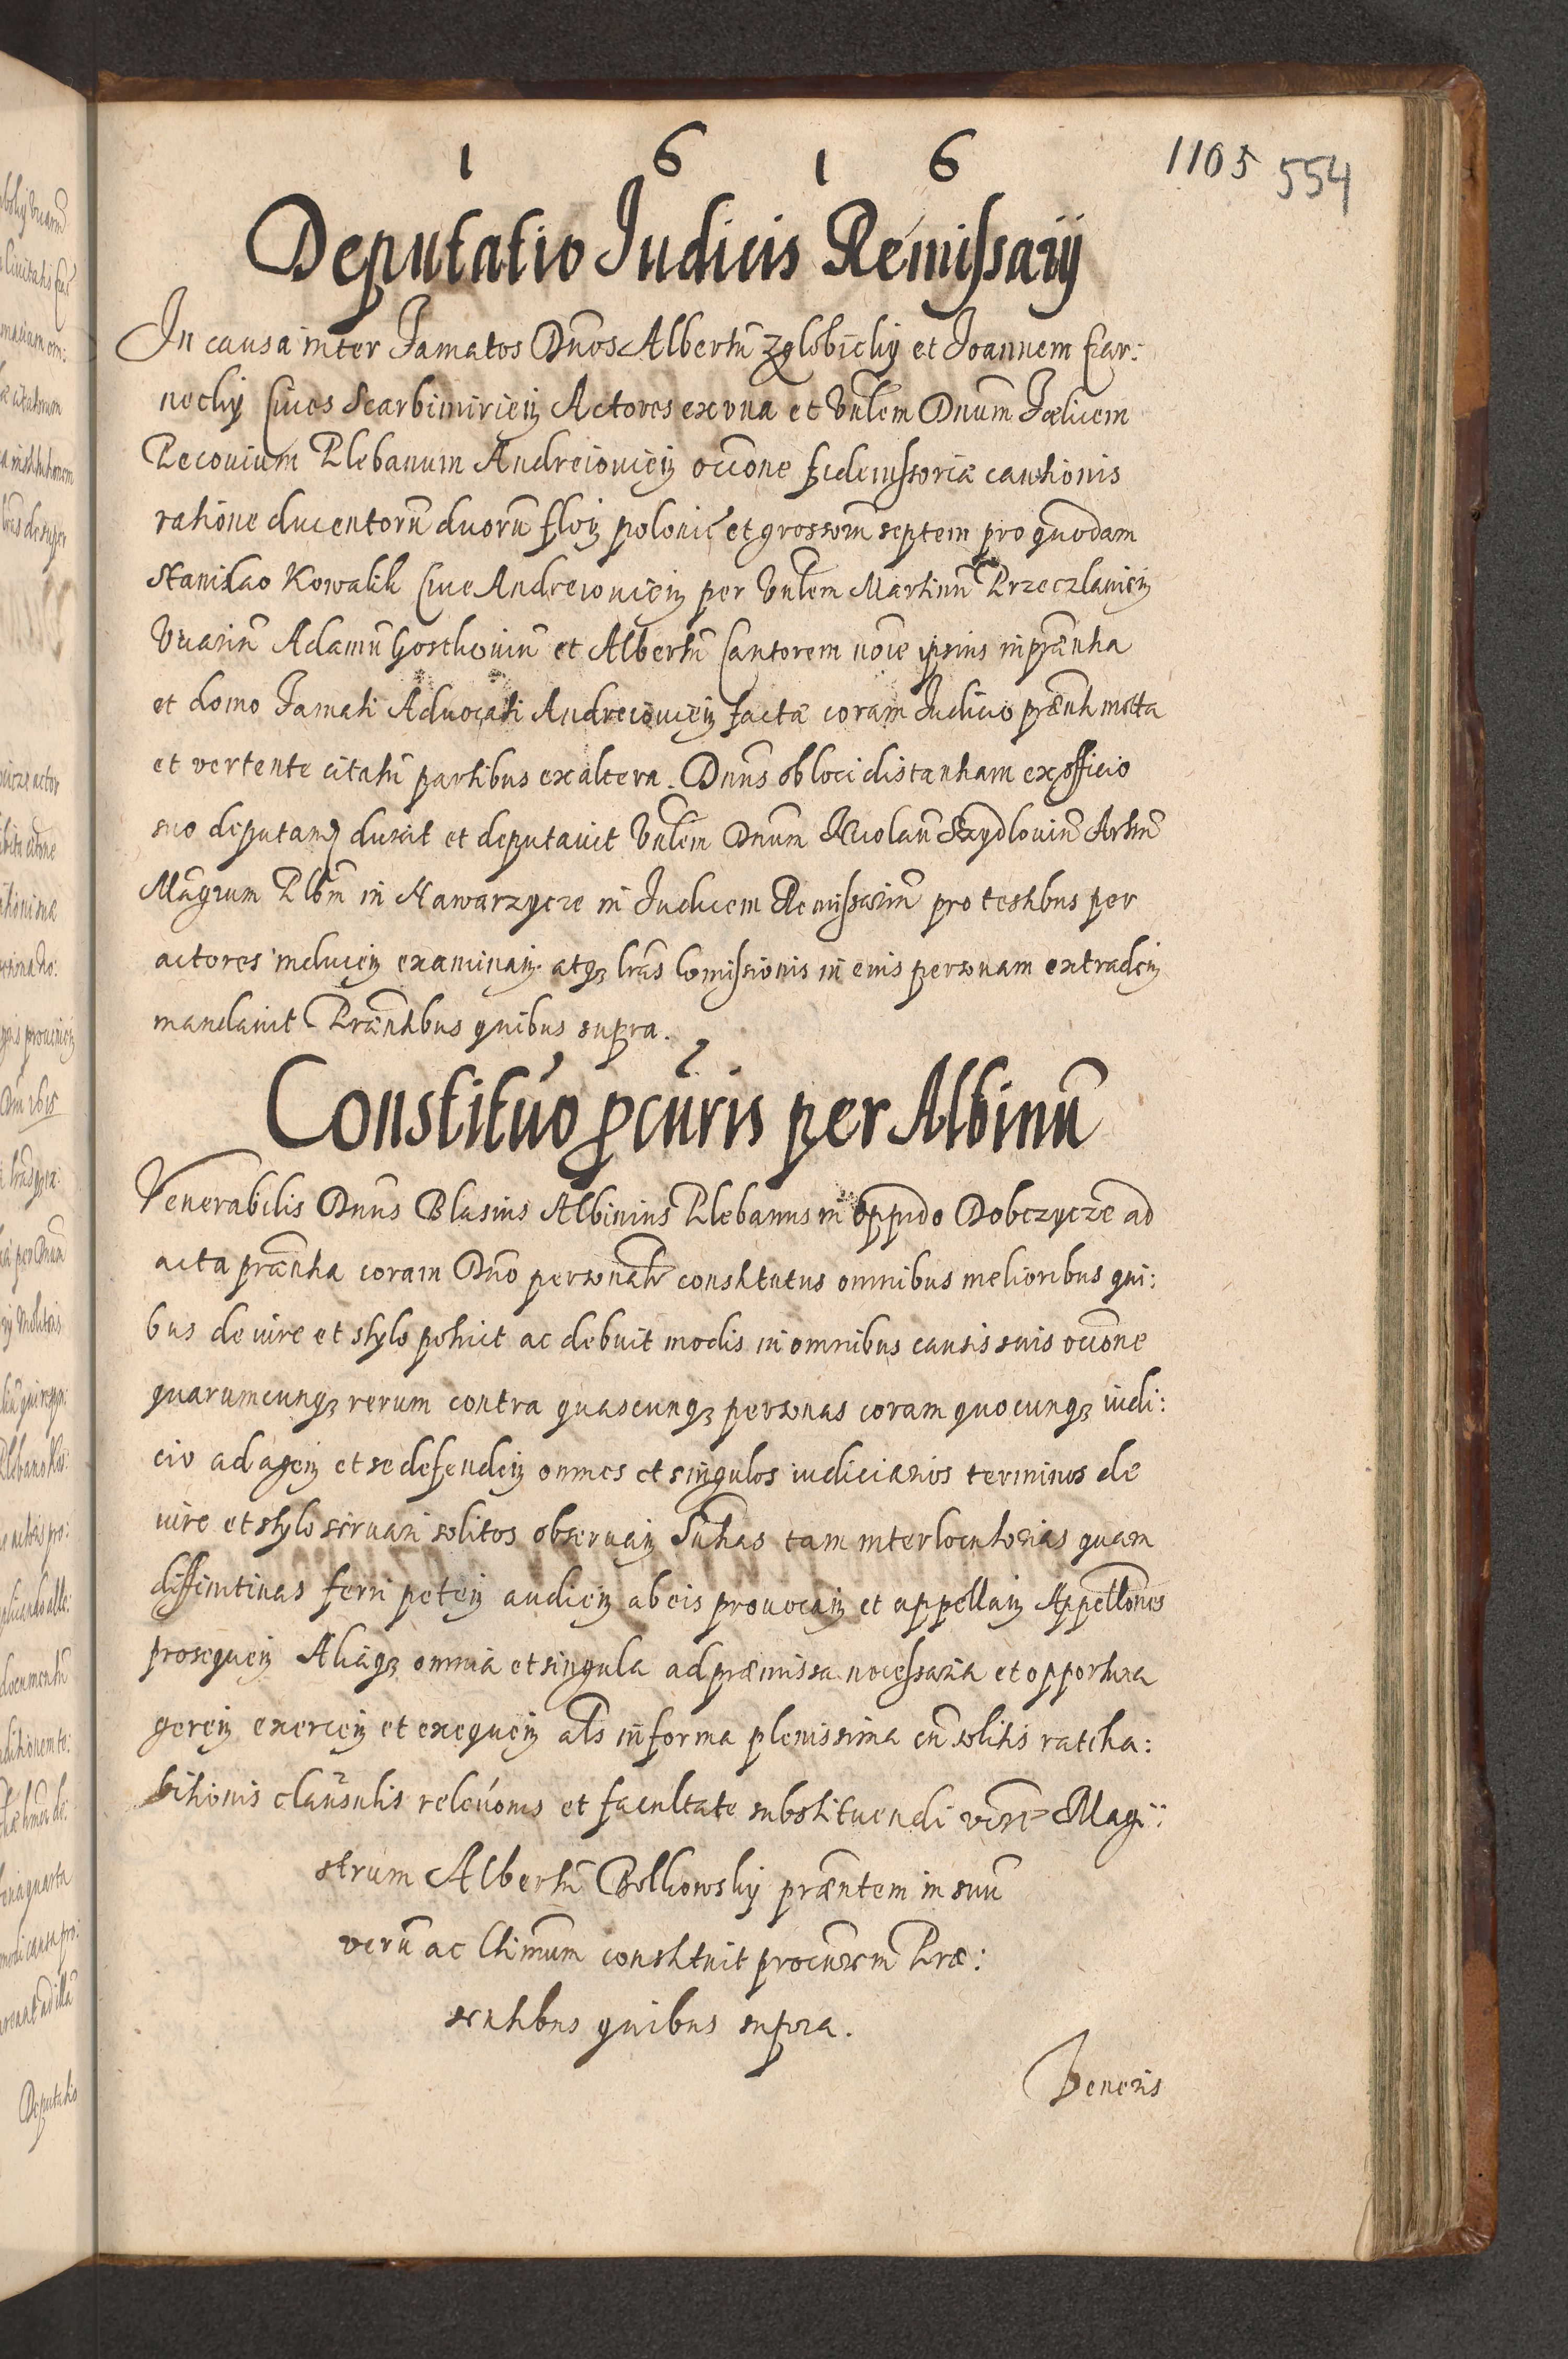 1 6 1 6
1105 554
Deputatio Judicis Remissarij
In causa inter Famatos Dnos Albertũ Zglobicky et Joannem Czar:
necky Cives Scarbimirien Actores ex vna et Vnlem Dnum Fælicem
Pecovium Plebanum Andreiovien occone fideiussoriæ cautionis
ratione ducentorũ duorũ flor polonic et grossorũ septem pro quodam
Stanislao Kowalik Cive Andreiovien per Vnlem Martinũ Przeczlavien
Vicariũ Adamũ Gorthovium et Albertũ Cantorem noie ipsius in præntia
et domo Famati Advocati Andreiovien factæ coram Judicio prænti mota
et vertente citatũ partibus ex altera. Dnus ob loci distantiam ex officio
suo deputand duxit et deputavit Vnlem Dnum Nicolaũ Szydlovium Artiũ
Magrum Plbm in Nawarzycze in Judicem Remissariũ pro testibus per
actores inducen examinan atq lras Comissionis in eius personam extraden
mandavit Præntibus quibus supra.
Constituo pcuris per Albinũ
Venerabilis Dnus Blasius Albinius Plebanus in oppido Dobczycze ad
acta præntia coram Dno personalr constitutus omnibus melioribus qui:
bus de iure et stylo potuit ac debuit modis in omnibus causis suis occone
quarumcunq rerum contra quascunq personas coram quocunq iudi:
cio ad agen et se defenden omnes et singulos iudiciarios terminos de
iure et stylo servari solitos observan Sntias tam interlocutorias quam
diffinitivas ferri peten audien ab eis provocan et appellan Appellones
prosequen Aliaq omnia et singula ad præmissa necessaria et opportuna
geren exercen et exequen als in forma plenissima cũ solitis ratiha:
bitionis clausulis relevonis et facultate substituendi Magi:
strum Albertũ Bolkowsky præntem in suũ
verũ ac ltimum constituit procurem Præ:
sentibus quibus supra.
Veneris